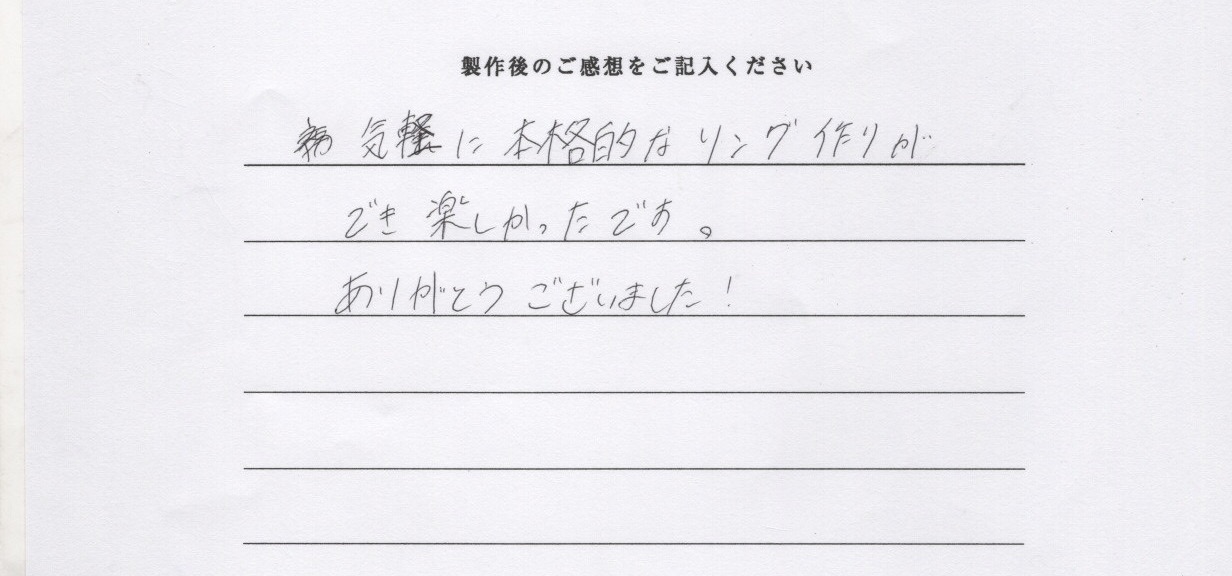 製作後のご感想をご記入ください
気軽に本格的なリング作りが
でき楽しかったです。
ありがとうございました！